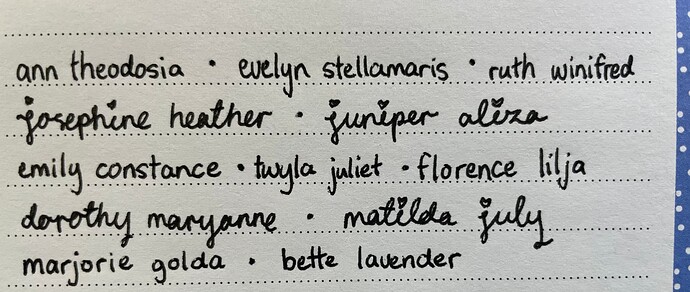 ann theodosia • evelyn stellamaris • ruth winifred
josephine heather • juniper aliza
emily constance • twyla juliet • florence lilja
dorothy maryanne • matilda july
marjorie golda • bette lavender